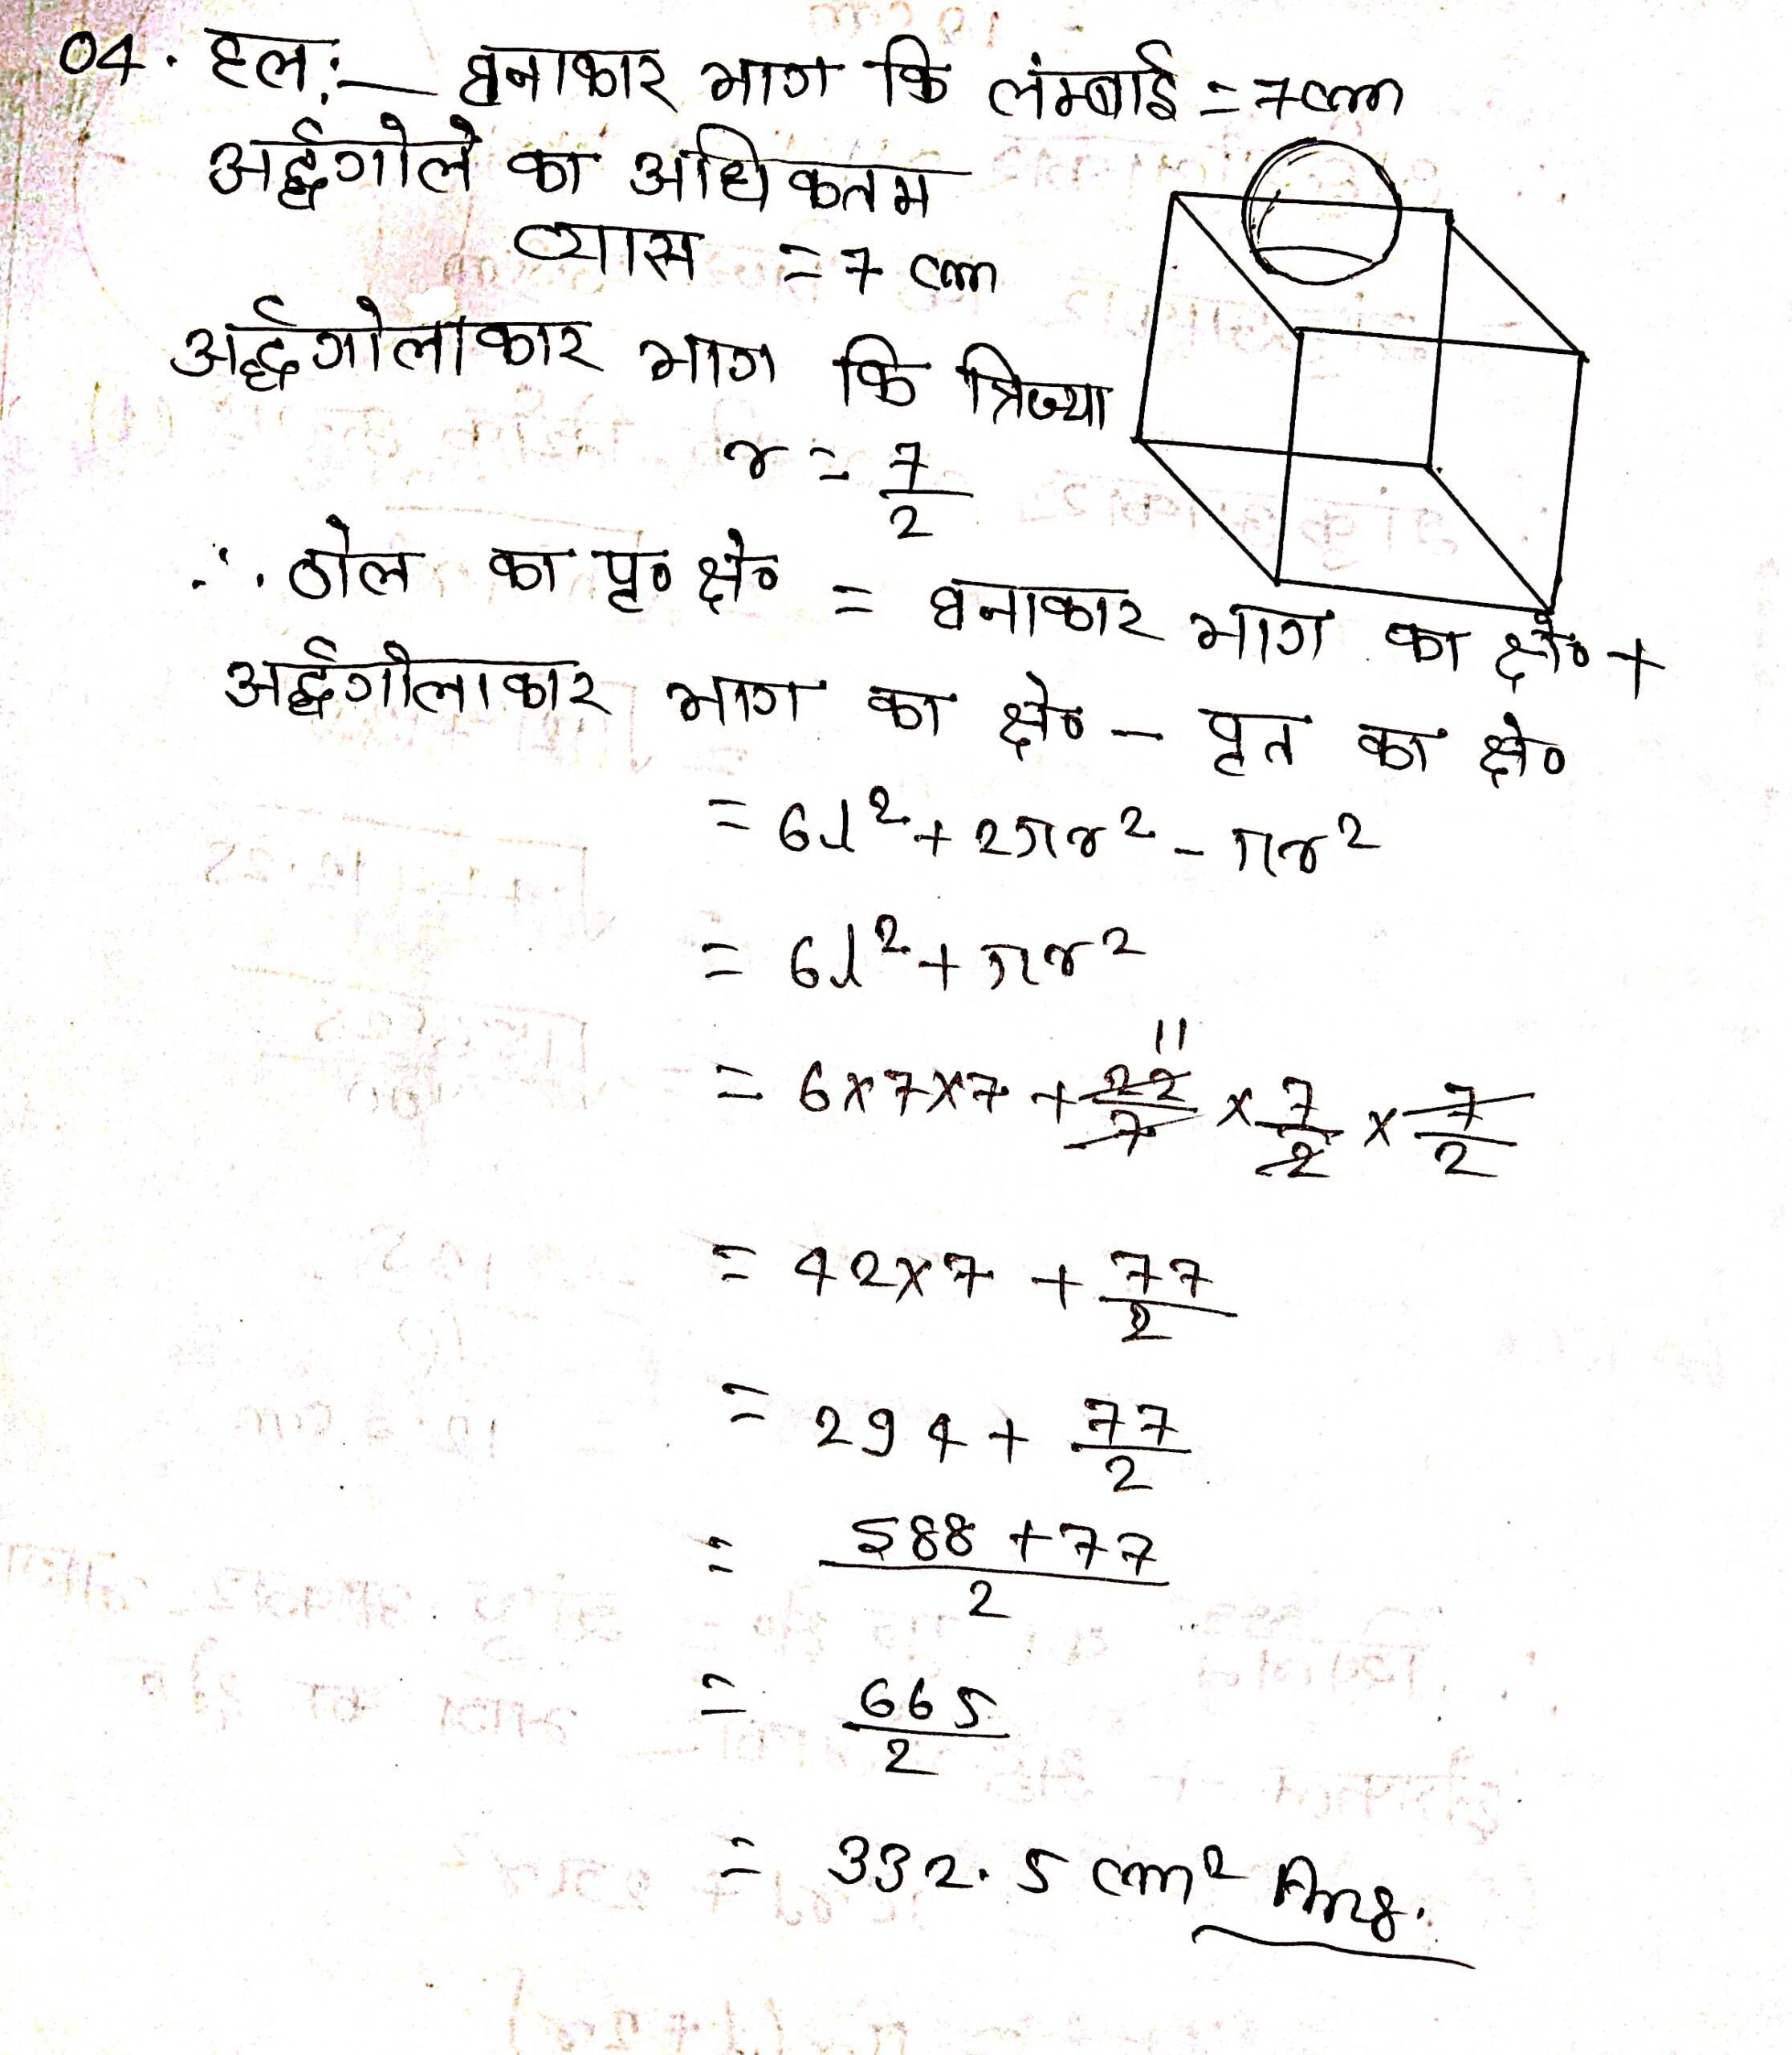 04. हल:— घनाकार भाग कि लंम्बाई = 7cm
अर्द्धगोले का अधिकतम
व्यास = 7 cm
अर्द्धगोलाकार भाग कि त्रिज्या
r = 7/2
∴ ठोस का पृ० क्षे० = घनाकार भाग का क्षे० +
अर्द्धगोलाकार भाग का क्षे० – वृत का क्षे०
= 6l² + 2πr² – πr²
= 6l² + πr²
11
= 6×7×7 + 22/7 × 7/2 × 7/2
= 42×7 + 77/2
= 294 + 77/2
= 588 + 77/2
= 665/2
= 332.5 cm² Ans.